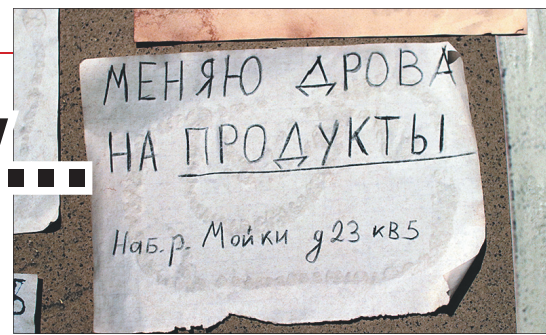 МЕНЯЮ ДРОВА
НА ПРОДУКТЫ
Наб. р. Мойки д 23 кв 5